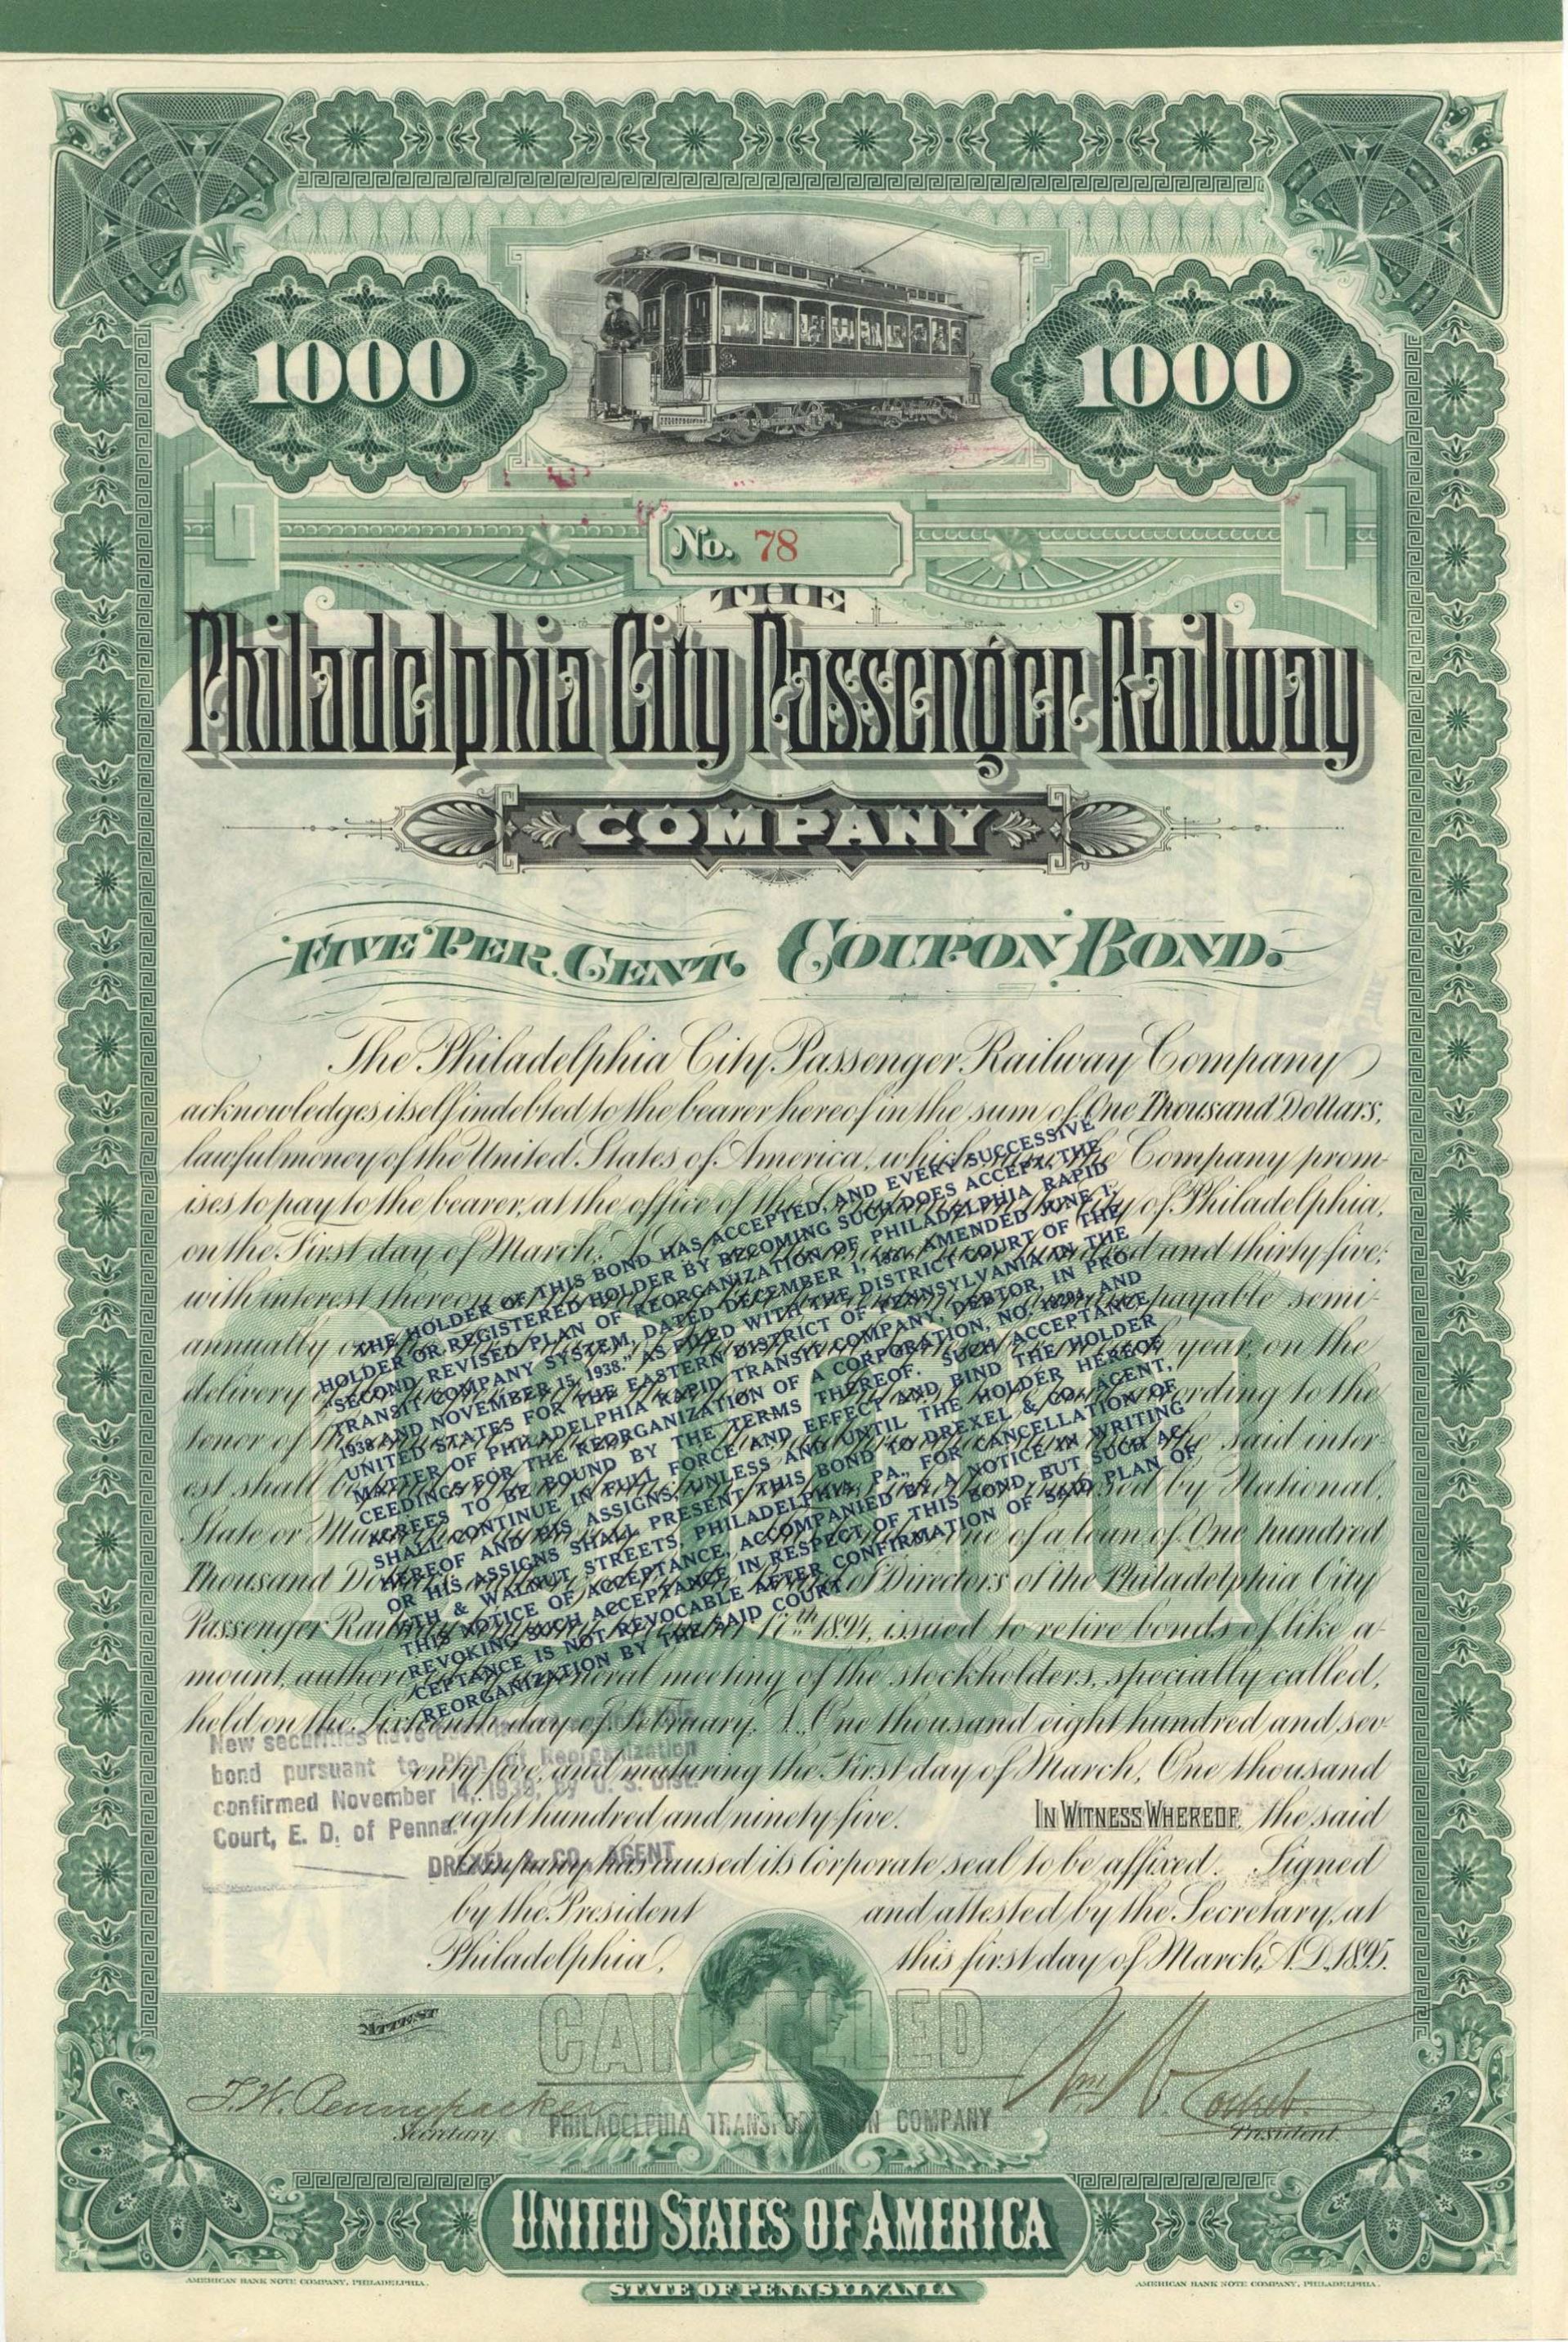 1000
1000
No. 78
THE
Philadelphia City Passenger Railway
COMPANY
FIVE PER CENT. COUPON BOND.
The Philadelphia City Passenger Railway Company
acknowledges itself indebted to the bearer hereof in the sum of One Thousand Dollars,
lawful money of the United States of America, which sum the Company prom-
ises to pay to the bearer, at the office of the Company, in the City of Philadelphia,
on the First day of March, hundred and thirty-five;
with interest thereon payable semi-
annually year, on the
delivery according to the
tenor of the said inter-
est shall be by National,
State or Mu one of a loan of One hundred
Thousand Dollars of Directors of the Philadelphia City
Passenger Railway 17th 1894, issued to retire bonds of like a-
mount, authorized general meeting of the stockholders, specially called,
held on the Sixteenth day of February, A.D. One thousand eight hundred and sev-
enty five, and maturing the First day of March, One thousand
eight hundred and ninety-five. IN WITNESS WHEREOF, the said
Company has caused its Corporate seal to be affixed. Signed
by the President and attested by the Secretary, at
Philadelphia, this first day of March, A.D. 1895.
THE HOLDER OF THIS BOND HAS ACCEPTED, AND EVERY SUCCESSIVE
HOLDER OR REGISTERED HOLDER BY BECOMING SUCH DOES ACCEPT, THE
"SECOND REVISED PLAN OF REORGANIZATION OF PHILADELPHIA RAPID
TRANSIT COMPANY SYSTEM, DATED DECEMBER 1, 1937, AMENDED JUNE 1,
1938 AND NOVEMBER 15, 1938." AS FILED WITH THE DISTRICT COURT OF THE
UNITED STATES FOR THE EASTERN DISTRICT OF PENNSYLVANIA IN THE
MATTER OF PHILADELPHIA RAPID TRANSIT COMPANY, DEBTOR, IN PRO-
CEEDINGS FOR THE REORGANIZATION OF A CORPORATION, NO. AND
AGREES TO BE BOUND BY THE TERMS THEREOF. SUCH ACCEPTANCE
SHALL CONTINUE IN FULL FORCE AND EFFECT AND BIND THE HOLDER
HEREOF AND HIS ASSIGNS, UNLESS AND UNTIL THE HOLDER HEREOF
OR HIS ASSIGNS SHALL PRESENT THIS BOND TO DREXEL & CO., AGENT,
15TH & WALNUT STREETS, PHILADELPHIA, PA., FOR CANCELLATION OF
THIS NOTICE OF ACCEPTANCE, ACCOMPANIED BY A NOTICE IN WRITING
REVOKING SUCH ACCEPTANCE IN RESPECT OF THIS BOND, BUT SUCH AC-
CEPTANCE IS NOT REVOCABLE AFTER CONFIRMATION OF SAID PLAN OF
REORGANIZATION BY THE SAID COURT
New securities have been
bond pursuant to Plan of Reorganization
confirmed November 14, 1939, by U. S. Dist.
Court, E. D. of Penna.
DREXEL & CO. AGENT
ATTEST
CANCELLED
PHILADELPHIA TRANSPORTATION COMPANY
T. W. Pennypacker
Secretary.
Wm. W.
President.
UNITED STATES OF AMERICA
AMERICAN BANK NOTE COMPANY, PHILADELPHIA.
STATE OF PENNSYLVANIA
AMERICAN BANK NOTE COMPANY, PHILADELPHIA.